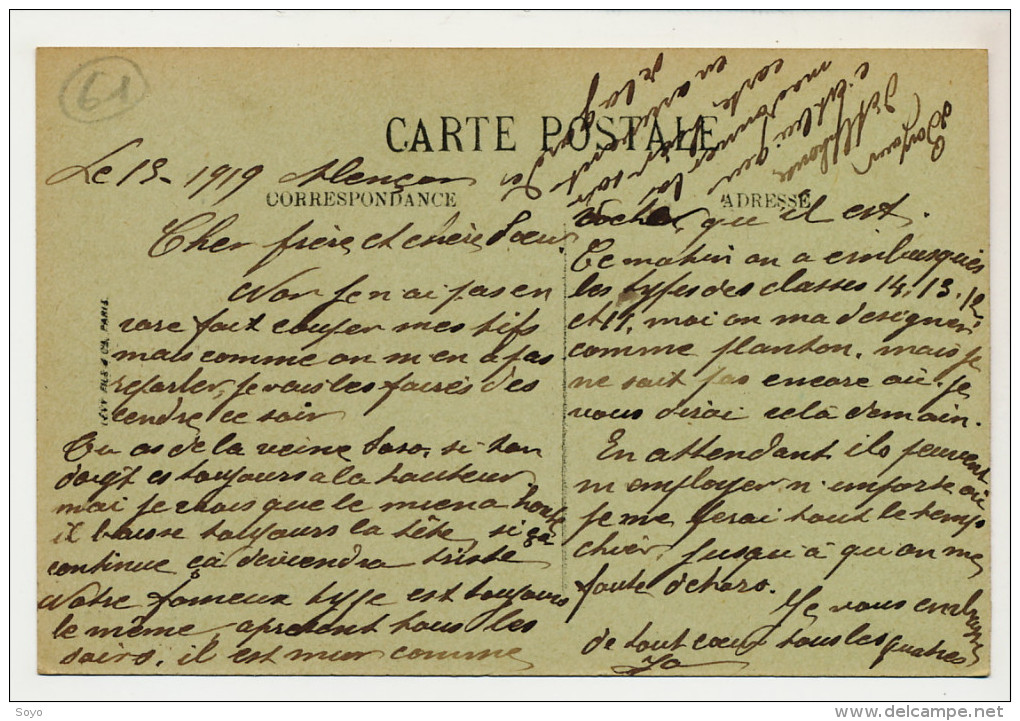 61
CARTE POSTALE
Le 13 - 1919 Alençon
CORRESPONDANCE
ADRESSE
Cher frère et chère Sœur.
Non je n'ai pas en
core fait couper mes tifs
mais comme on m'en a pas
reparler, je vais les faires des
cendre ce soir
Tu as de la veine Soso, si ton
doigt es toujours a la hauteur
moi je crois que le mien a honte
il baisse toujours la tête, si ça
continue ça deviendra triste
Notre fameux type est toujours
le même, après tous les
soirs, il est mur comme
cochon qu'il est.
Ce matin on a embusqués
les types des classes 14, 13, 12
et 11, moi on m'a designer
comme planton, mais je
ne sait pas encore où. je
vous dirai cela demain.
En attendant ils peuvent
m'employer n'importe où
je me ferai tout le temps
chier, jusqu'à qu'on me
foute dehors.
Je vous embrasse
de tout cœur tous les quatres
Jo
Bonjour
d'Alphonse
c'est lui qui
carte
de la gare
LÉVY FILS & Cie PARIS.
Soyo
www.delcampe.net